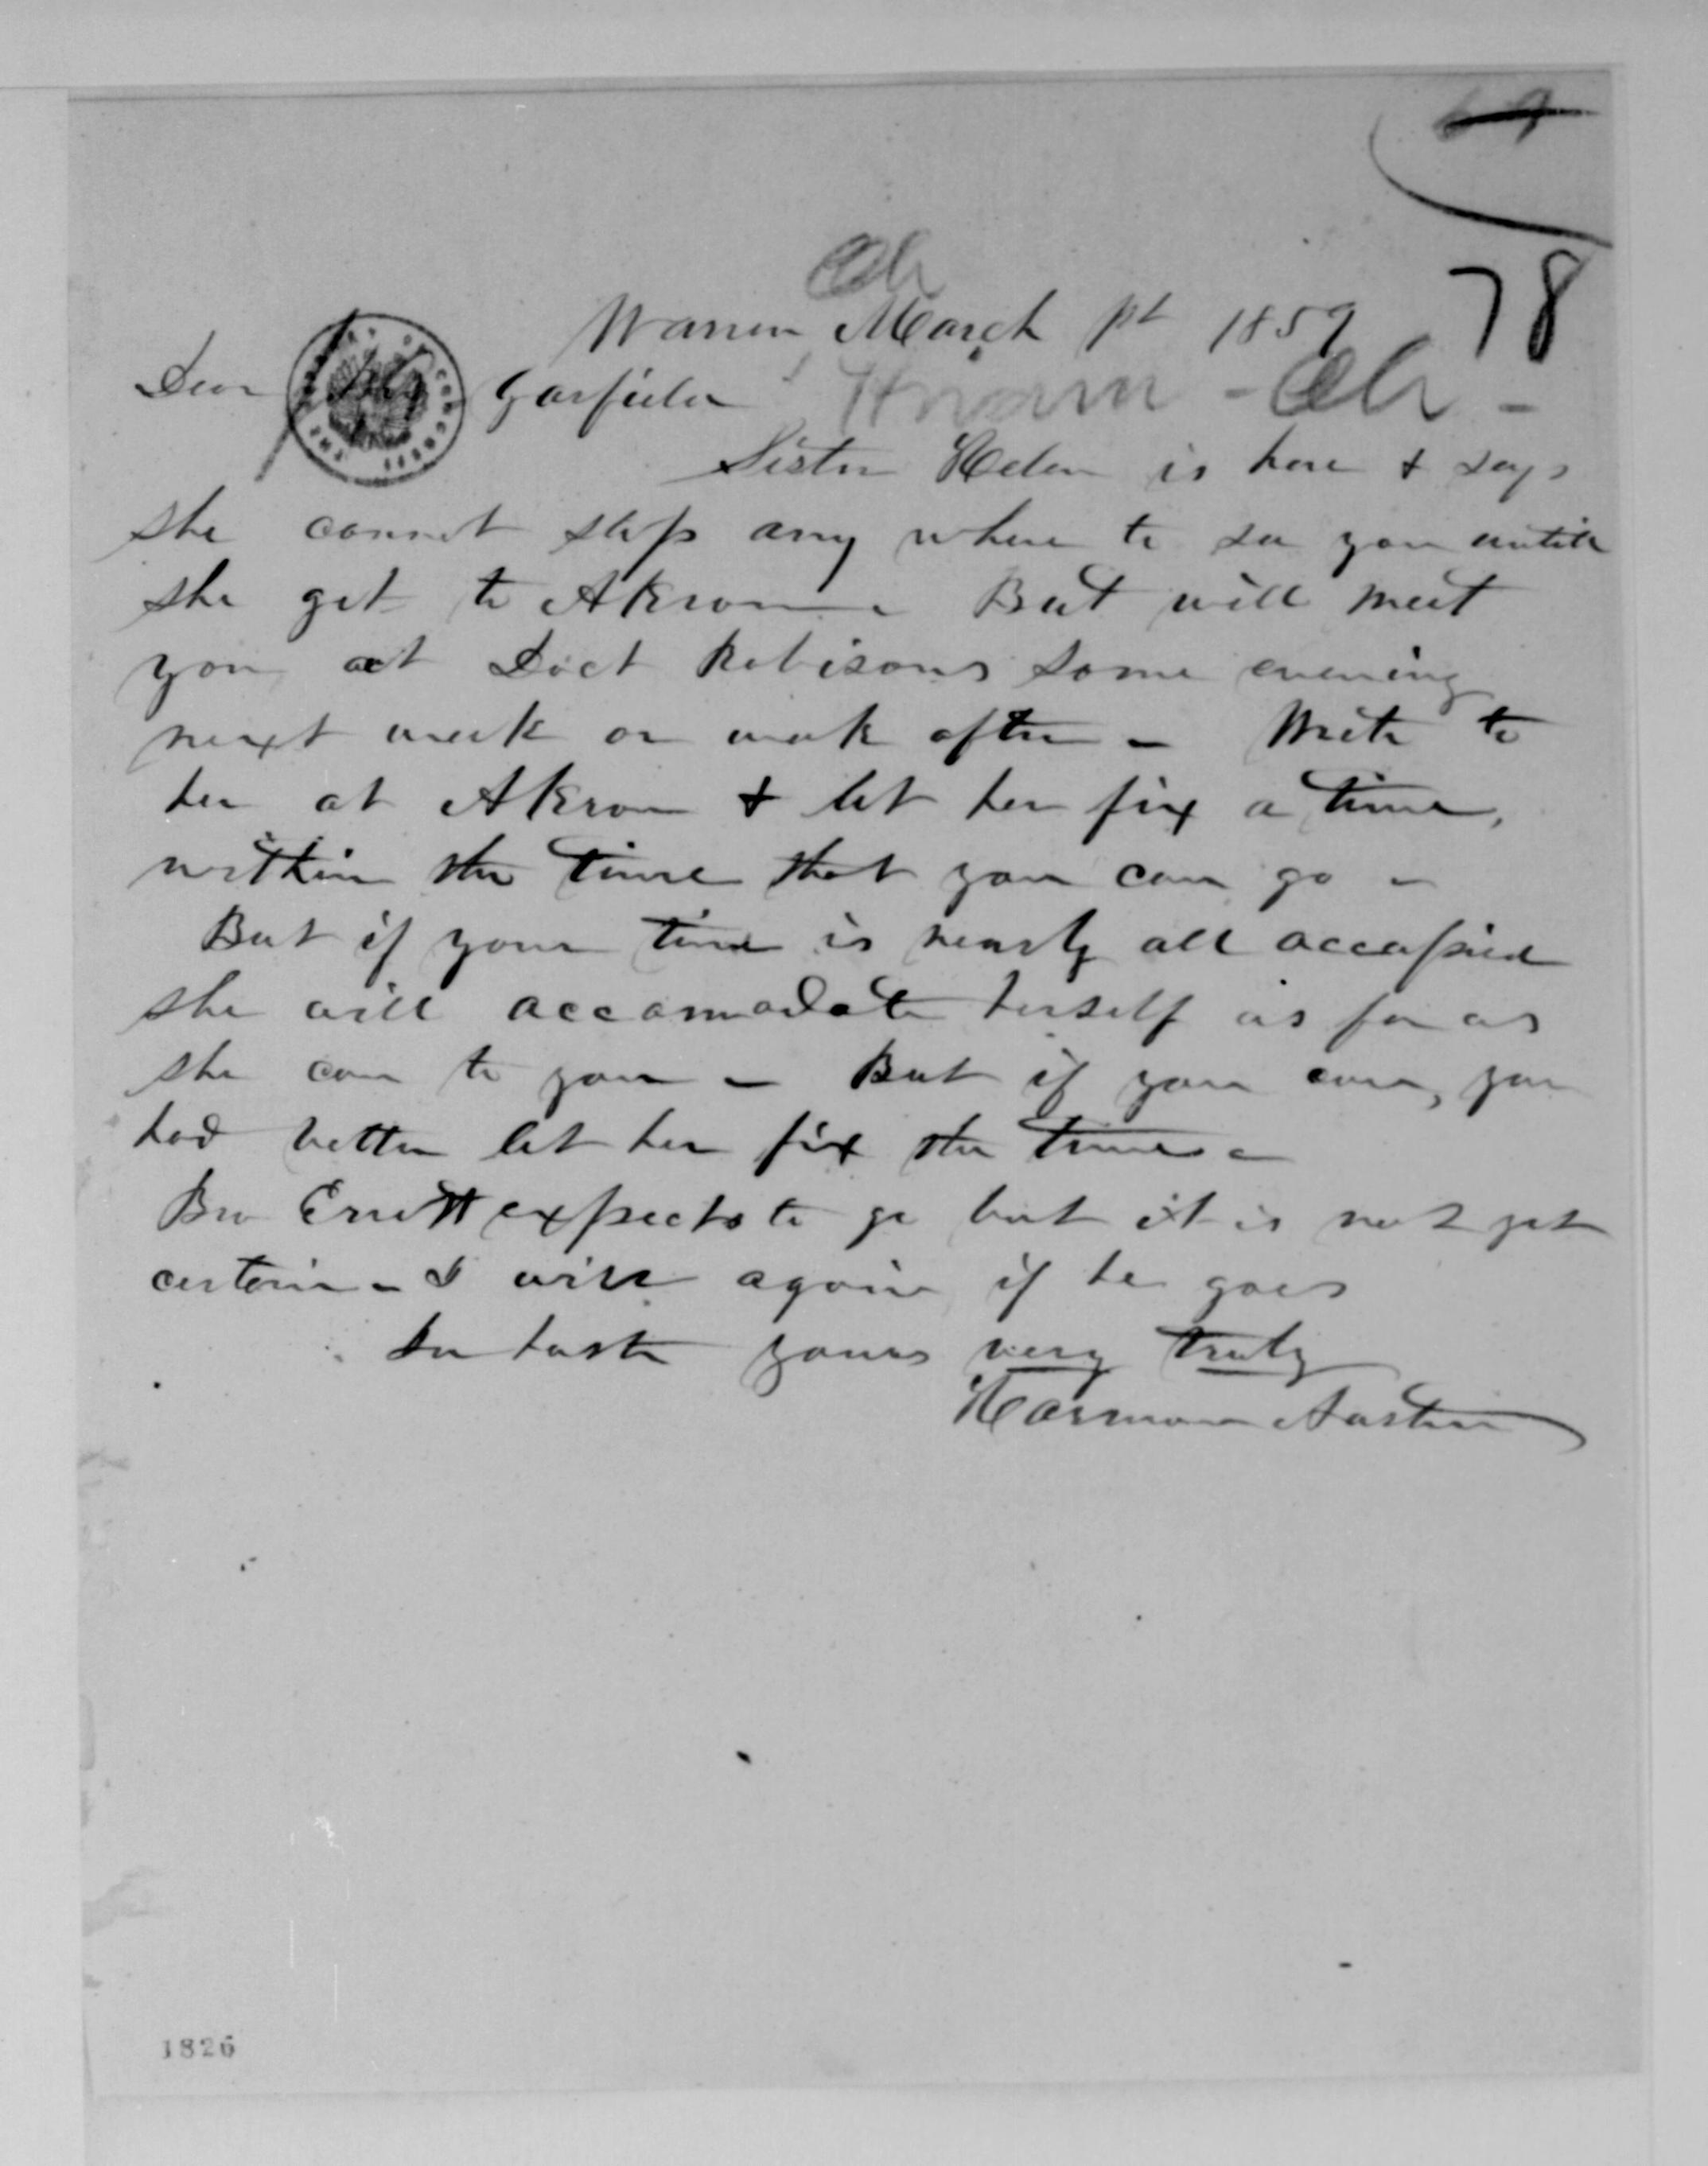 78
Oh
Warren March 1st 1859
Dear Garfield Hiram - Oh -
Sister Helen is here & says
she cannot stop any where to see you untill
she get to Akron - But will meet
you at Doct Robisons some evening
next week or week after - Write to
her at Akron & let her fix a time,
within the time that you can go -
But if your time is nearly all occupied
she will accommodate herself as far as
she can to you - But if you can, you
had better let her fix the time -
Bro Errett expects to go but it is not yet
certain - I will again if he goes
In haste yours very truly
Harmon Austin
1826